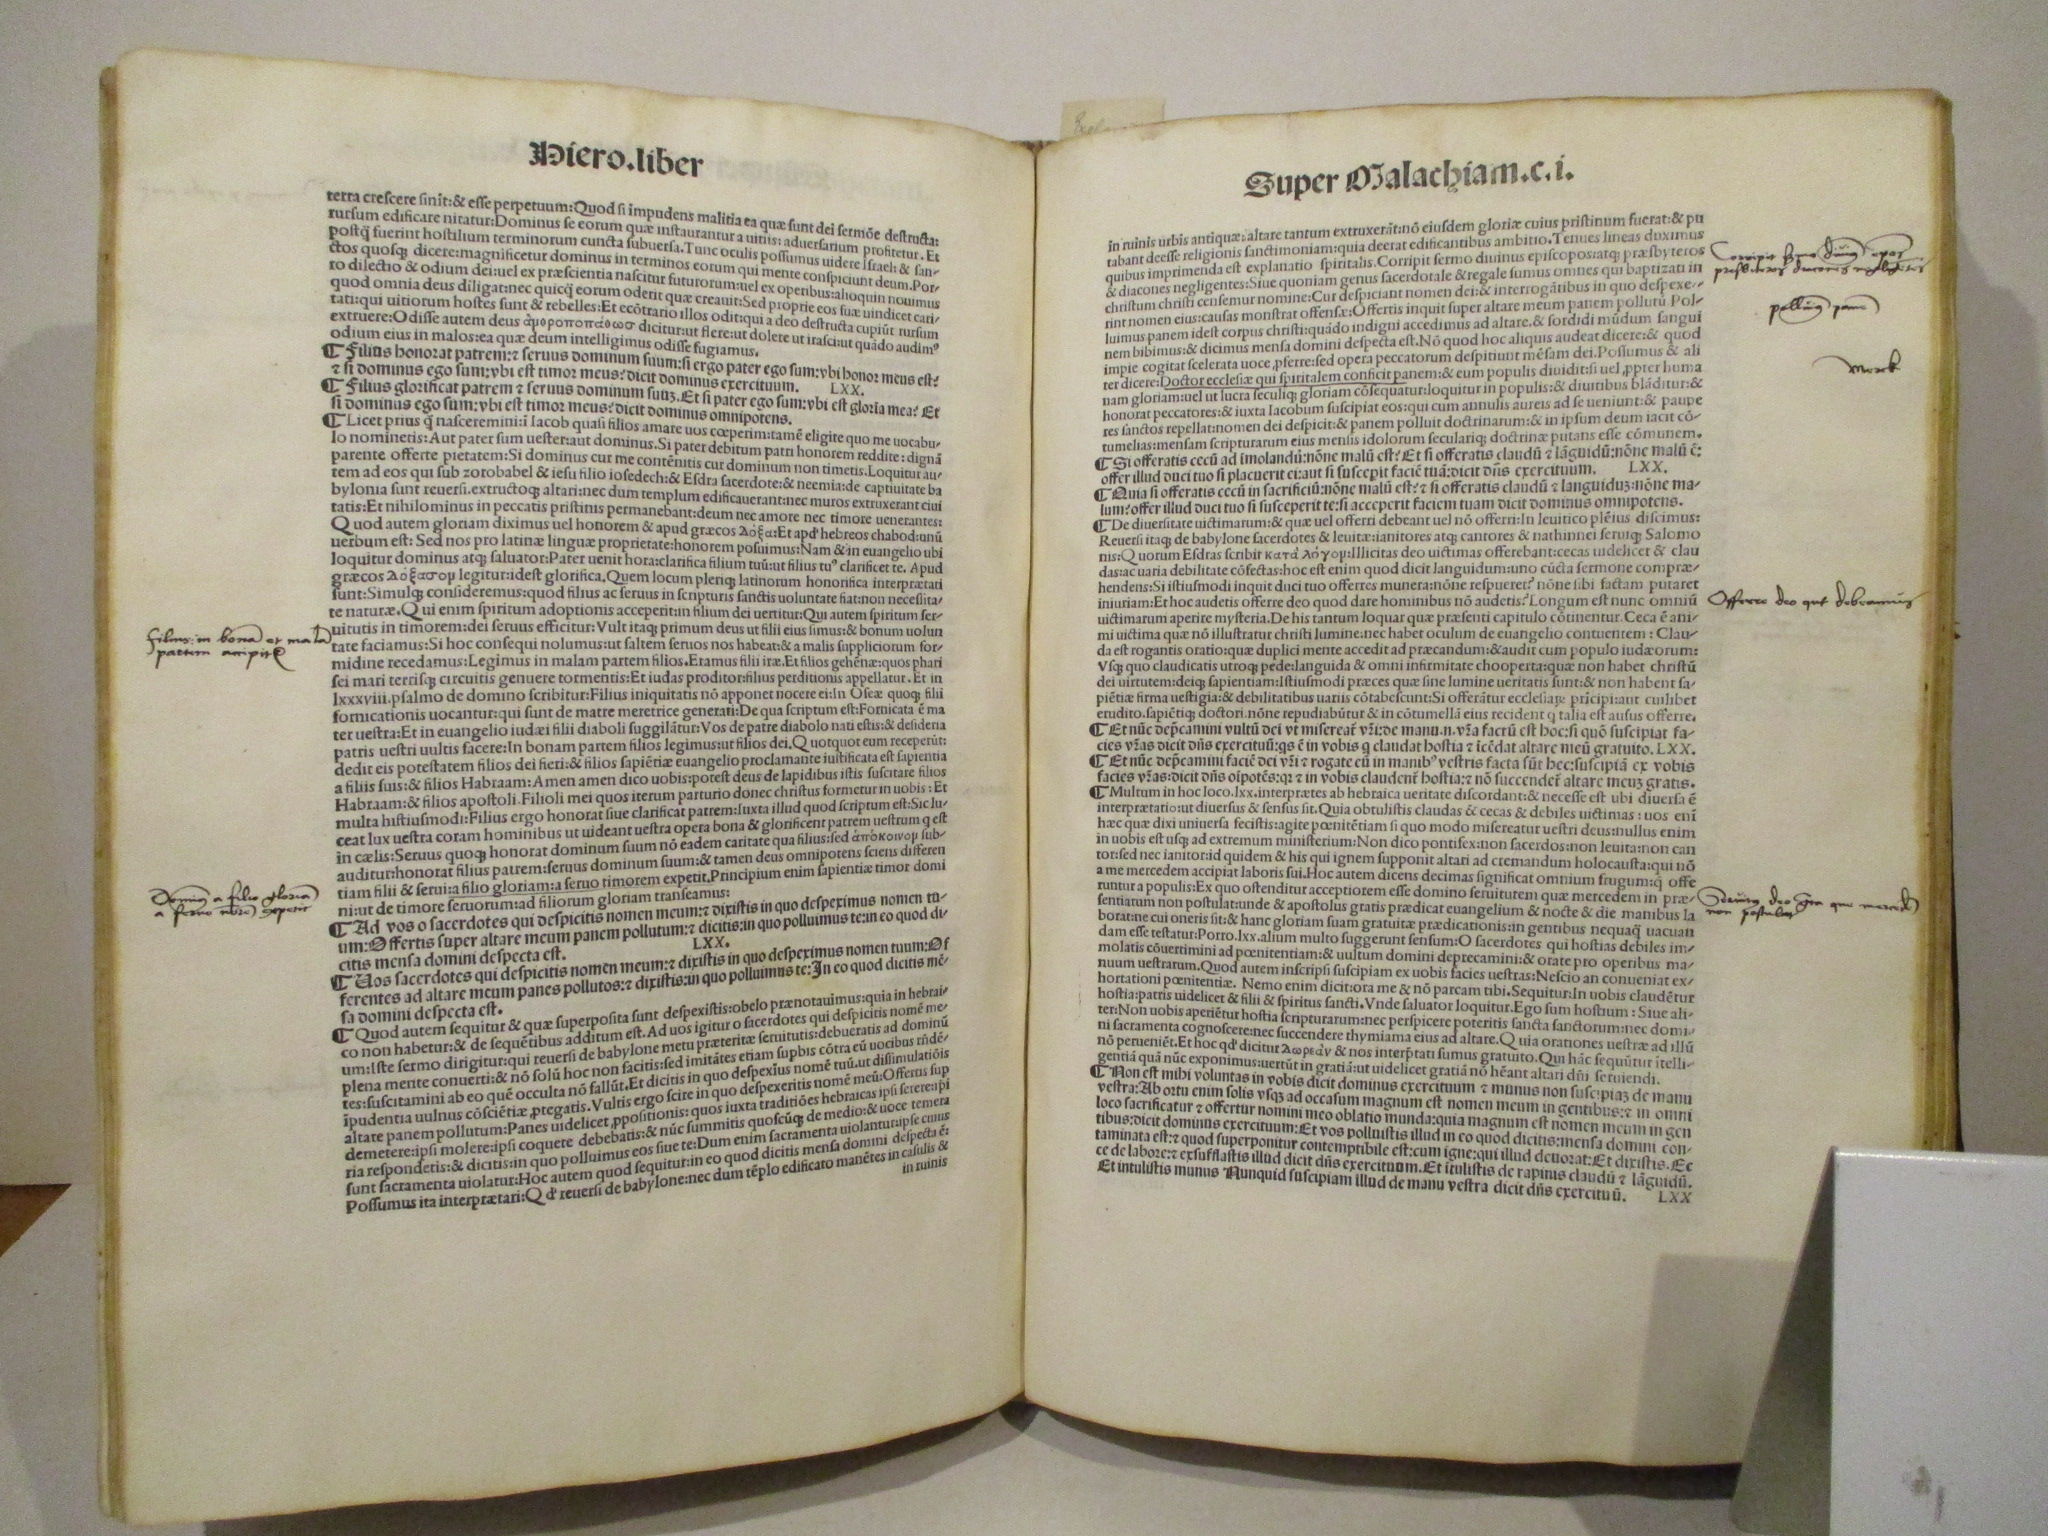 Hiero.liber
terra crescere sinit:& esse perpetuum:Quod si impudens malitia ea quæ sunt dei sermōe destructa:
rursum edificare nitatur:Dominus se eorum quæ instaurantur a uitiis: aduersarium profitetur. Et
postq̄ fuerint hostilium terminorum cuncta subuersa.Tunc oculis possumus uidere Israel: & san-
ctos quosq; dicere:magnificetur dominus in terminos eorum qui mente conspiciunt deum.Por-
ro dilectio & odium dei:uel ex præscientia nascitur futurorum:uel ex operibus:alioquin nouimus
quod omnia deus diligat:nec quicq̄ eorum oderit quæ creauit:Sed proprie eos suæ uindicet cari-
tati:qui uitiorum hostes sunt & rebelles:Et ecōtrario illos odit:qui a deo destructa cupiūt rursum
extruere:Odisse autem deus dicitur:ut flere:ut dolere ut irasci:ut quādo audimꝰ
odium eius in malos:ea quæ deum intelligimus odisse fugiamus.
¶ Filius honorat patrem:⁊ seruus dominum suum:si ergo pater ego sum:vbi honor meus est?
⁊ si dominus ego sum:vbi est timor meus?dicit dominus exercituum. LXX.
¶ Filius glorificat patrem ⁊ seruus dominum suuꝫ.Et si pater ego sum:vbi est gloria mea? Et
si dominus ego sum:vbi est timor meus?dicit dominus omnipotens.
¶ Licet prius q̄ nasceremini:ī Iacob quasi filios amare uos cœperim:tamē eligite quo me uocabu-
lo nominetis: Aut pater sum uester:aut dominus.Si pater debitum patri honorem reddite: dignā
parente offerte pietatem:Si dominus cur me contēnitis cur dominum non timetis.Loquitur au-
tem ad eos qui sub zorobabel & iesu filio iosedech:& Esdra sacerdote:& neemia:de captiuitate ba
bylonia sunt reuersi.extructoq; altari:nec dum templum edificauerant:nec muros extruxerant ciui
tatis:Et nihilominus in peccatis pristinis permanebant:deum nec amore nec timore uenerantes:
Quod autem gloriam diximus uel honorem & apud græcos Δόξα:Et apd' hebreos chabod:unū
uerbum est: Sed nos pro latinæ linguæ proprietate:honorem posuimus:Nam & in euangelio ubi
loquitur dominus atq; saluator:Pater uenit hora:clarifica filium tuū:ut filius tuꝰ clarificet te. Apud
græcos Δόξασομ legitur:idest glorifica.Quem locum pleriq; latinorum honorifica interprætati
sunt:Simulq; consideremus:quod filius ac seruus in scripturis sanctis uoluntate fiat:non necessita-
te naturæ.Qui enim spiritum adoptionis acceperit:in filium dei uertitur:Qui autem spiritum ser-
uitutis in timorem:dei seruus efficitur:Vult itaq; primum deus ut filii eius simus:& bonum uolun
tate faciamus:Si hoc consequi nolumus:ut saltem seruos nos habeat:& a malis suppliciorum for-
midine recedamus:Legimus in malam partem filios.Eramus filii iræ.Et filios gehēnæ:quos phari
sei mari terrisq; circuitis genuere tormentis:Et iudas proditor:filius perditionis appellatur. Et in
lxxxviii.psalmo de domino scribitur:Filius iniquitatis nō apponet nocere ei:In Oseæ quoq; filii
fornicationis uocantur:qui sunt de matre meretrice generati:De qua scriptum est:Fornicata ē ma
ter uestra:Et in euangelio iudæi filii diaboli suggilātur:Vos de patre diabolo nati estis:& desideria
patris uestri uultis facere:In bonam partem filios legimus:ut filios dei.Quotquot eum receperūt:
dedit eis potestatem filios dei fieri:& filios sapiētiæ euangelio proclamante iustificata est sapientia
a filiis suis:& filios Habraam:Amen amen dico uobis:potest deus de lapidibus istis suscitare filios
Habraam:& filios apostoli.Filioli mei quos iterum parturio donec christus formetur in uobis : Et
multa histiusmodi:Filius ergo honorat siue clarificat patrem:Iuxta illud quod scriptum est:Sic lu-
ceat lux uestra coram hominibus ut uideant uestra opera bona & glorificent patrem uestrum q est
in cælis:Seruus quoq; honorat dominum suum nō eadem caritate qua filius:sed ἀπὸκοινομ sub-
auditur:honorat filius patrem:seruus dominum suum:& tamen deus omnipotens sciens differen
tiam filii & serui:a filio gloriam:a seruo timorem expetit.Principium enim sapientiæ timor domi
ni:ut de timore seruorum:ad filiorum gloriam transeamus:
¶ Ad vos o sacerdotes qui despicitis nomen meum:⁊ dixistis in quo despeximus nomen tu-
um:Offertis super altare meum panem pollutum:⁊ dicitis:in quo polluimus te:in eo quod di-
citis mensa domini despecta est. LXX.
¶ Uos sacerdotes qui despicitis nomen meum:⁊ dixistis in quo despeximus nomen tuum:Of
ferentes ad altare meum panes pollutos:⁊ dixistis:in quo polluimus te:In eo quod dicitis mē-
sa domini despecta est.
¶ Quod autem sequitur & quæ superposita sunt despexistis:obelo prænotauimus:quia in hebrai-
co non habetur:& de sequētibus additum est.Ad uos igitur o sacerdotes qui despicitis nomē me-
um:Iste sermo dirigitur:qui reuersi de babylone metu præteritæ seruitutis:debueratis ad dominū
plena mente conuerti:& nō solū hoc non facitis:sed imitātes etiam
tes:suscitamini ab eo quē occulta nō fallūt.Et dicitis in quo despeximus nomē tuū.ut dissimulatiōis
īpudentia uulnus cōsciētiæ ꝓtegatis.Vultis ergo scire in quo despexeritis nomē meū:Offertis sup
altare panem pollutum:Panes uidelicet ꝓppositionis: quos iuxta traditiōes hebraicas ipsi serere:ipsi
demetere:ipsi molere:ipsi coquere debebatis:& nūc summitis quoscūq; de medio:& uoce temera
ria respondetis:& dicitis:in quo polluimus eos siue te:Dum enim sacramenta uiolantur:ipse cuius
sunt sacramenta uiolatur:Hoc autem quod sequitur:in eo quod dicitis mensa domini despecta ē:
Possumus ita interprætari:Q d' reuersi de babylone:nec dum tēplo edificato manētes in casulis &
in ruinis
filius in bonā et malā
partem accipit
Dominus a filio gloriam
a seruo timorem expetit
Super Malachiam.c.i.
in ruinis urbis antiquæ:altare tantum extruxerāt:nō eiusdem gloriæ cuius pristinum fuerat:& pu
tabant deesse religionis sanctimoniam:quia deerat edificantibus ambitio.Tenues lineas duximus
quibus imprimenda est explanatio spiritalis.Corripit sermo diuinus episcopos:atq; præsbyteros
& diacones negligentes:Siue quoniam genus sacerdotale & regale sumus omnes qui baptizati in
christum christi censemur nomine:Cur despiciant nomen dei:& interrogātibus in quo despexe-
rint nomen eius:causas monstrat offensæ:Offertis inquit super altare meum panem pollutū Pol-
luimus panem idest corpus christi:quādo indigni accedimus ad altare.& sordidi mūdum sangui
nem bibimus:& dicimus mensa domini despecta est.Nō quod hoc aliquis audeat dicere:& quod
impie cogitat scelerata uoce ꝓferre:sed opera peccatorum despitiunt mēsam dei.Possumus & ali
ter dicere:Doctor ecclesiæ qui spiritalem conficit panem:& eum populis diuidit:si uel ꝓpter huma
nam gloriam:uel ut lucra seculiq; gloriam cōsequatur:loquitur in populis:& diuitibus blāditur:&
honorat peccatores:& iuxta Iacobum suscipiat eos:qui cum annulis aureis ad se ueniunt:& paupe
res sanctos repellat:nomen dei despicit:& panem polluit doctrinarum:& in ipsum deum iacit cō-
tumelias:mensam scripturarum eius mensis idolorum seculariq; doctrinæ putans esse cōmunem.
¶ Si offeratis cecū ad imolandū:nōne malū est? Et si offeratis claudū ⁊ lāguidū:nōne malū ē:
offer illud duci tuo si placuerit ei:aut si susceperit faciē tuā:dicit dn̄s exercituum. LXX.
¶ Quia si offeratis cecū in sacrificiū:nōne malū est?⁊ si offeratis claudū ⁊ languiduꝫ:nōne ma-
lum?offer illud duci tuo si susceperit te:si acceperit faciem tuam dicit dominus omnipotens.
¶ De diuersitate uictimarum:& quæ uel offerri debeant uel nō offerri:In leuitico plēius discimus:
Reuersi itaq; de babylone sacerdotes & leuitæ:ianitores atq; cantores & nathinnei seruiq; Salomo
nis:Quorum Esdras scribit κατὰ λόγομ:Illicitas deo uictimas offerebant:cecas uidelicet & clau
das:ac uaria debilitate cōfectas:hoc est enim quod dicit languidum:uno cūcta sermone compræ-
hendens:Si istiusmodi inquit duci tuo offerres munera:nōne respueret? nōne sibi factam putaret
iniuriam:Et hoc audetis offerre deo quod dare hominibus nō audetis?Longum est nunc omniū
uictimarum aperire mysteria.De his tantum loquar quæ præsenti capitulo cōtinentur.Ceca ē ani-
mi uictima quæ nō illustratur christi lumine:nec habet oculum de euangelio contuentem : Clau-
da est rogantis oratio:quæ duplici mente accedit ad præcandum:&audit cum populo iudæorum:
Vsq; quo claudicatis utroq; pede:languida & omni infirmitate chooperta:quæ non habet christū
dei uirtutem:deiq; sapientiam:Istiusmodi præces quæ sine lumine ueritatis sunt:& non habent sa-
piētiæ firma uestigia:& debilitatibus uariis cōtabescunt:Si offerātur ecclesiaȩ prīcipi:aut cuilibet
erudito.sapiētiq; doctori.nōne repudiabūtur & in cōtumeliā eius recident q talia est ausus offerre.
¶ Et nūc dep̄camini vultū dei vt misereat̄ vr̄i:de manu.n.vr̄a factū est hoc:si quō suscipiat fa-
cies vr̄as dicit dn̄s exercituū:qs ē in vobis q claudat hostia ⁊ īcēdat altare meū gratuito. LXX.
¶ Et nūc dep̄camini faciē dei vr̄i ⁊ rogate eū in manibꝰ vestris facta sūt hec:suscipiā ex vobis
facies vr̄as:dicit dn̄s oīpotēs:qꝛ ⁊ in vobis claudent̄ hostia:⁊ nō succendet̄ altare meuꝫ gratis.
¶ Multum in hoc loco.lxx.interprætes ab hebraica ueritate discordant:& necesse est ubi diuersa ē
interprætatio:ut diuersus & sensus sit.Quia obtulistis claudas & cecas & debiles uictimas : uos enī
hæc quæ dixi uniuersa fecistis:agite pœnitētiam si quo modo misereatur uestri deus:nullus enim
in uobis est usq; ad extremum ministerium:Non dico pontifex:non sacerdos:non leuita:non can
tor:sed nec ianitor:id quidem & his qui ignem supponit altari ad cremandum holocausta:qui nō
a me mercedem accipiat laboris sui.Hoc autem dicens decimas significat omnium frugum:q̄ offe
runtur a populis:Ex quo ostenditur acceptiorem esse domino seruitutem quæ mercedem in præ-
sentiarum non postulat:unde & apostolus gratis prædicat euangelium & nocte & die manibus la
borat:ne cui oneris sit:& hanc gloriam suam gratuitæ prædicationis:in gentibus nequaq̄ uacuan
dam esse testatur:Porro.lxx.alium multo suggerunt sensum:O sacerdotes qui hostias debiles im-
molatis cōuertimini ad pœnitentiam:& uultum domini deprecamini:& orate pro operibus ma-
nuum uestrarum.Quod autem inscripsi suscipiam ex uobis facies uestras:Nescio an conueniat ex-
hortationi pœnitentiæ. Nemo enim dicit:ora me & nō parcam tibi.Sequitur:In uobis claudētur
hostia:patris uidelicet & filii & spiritus sancti.Vnde saluator loquitur.Ego sum hostium : Siue ali-
ter:Non uobis aperiētur hostia scripturarum:nec perspicere poteritis sancta sanctorum:nec domi-
ni sacramenta cognoscere:nec succendere thymiama eius ad altare.Quia orationes uestræ ad illū
nō perueniēt.Et hoc qd' dicitur Δωρεὰν & nos interp̄tati sumus gratuito.Qui hāc sequūtur ītelli-
gentiā quā nūc exponimus:uertūt in gratiā:ut uidelicet gratiā nō hēant altari dn̄i seruiendi.
¶ Non est mihi voluntas in vobis dicit dominus exercituum ⁊ munus non suscipiaꝫ de manu
vestra:Ab ortu enim solis vsqꝫ ad occasum magnum est nomen meum in gentibus:⁊ in omni
loco sacrificatur ⁊ offertur nomini meo oblatio munda:quia magnum est nomen meum in gen
tibus:dicit dominus exercituum:Et vos polluistis illud in eo quod dicitis:mensa domini con-
taminata est:⁊ quod superponitur contemptibile est:cum igne:qui illud deuorat:Et dixistis.Ec
ce de labore:⁊ exsufflastis illud dicit dn̄s exercituum.Et ītulistis de rapinis claudū ⁊ lāguidū.
Et intulistis munus Nunquid suscipiam illud de manu vestra dicit dn̄s exercituū. LXX
Corripit sermo diuinus
presbiteros diacones negligentes
pollutum panem
Offerre deo que debeamus
deo quae mercedem
non postulat